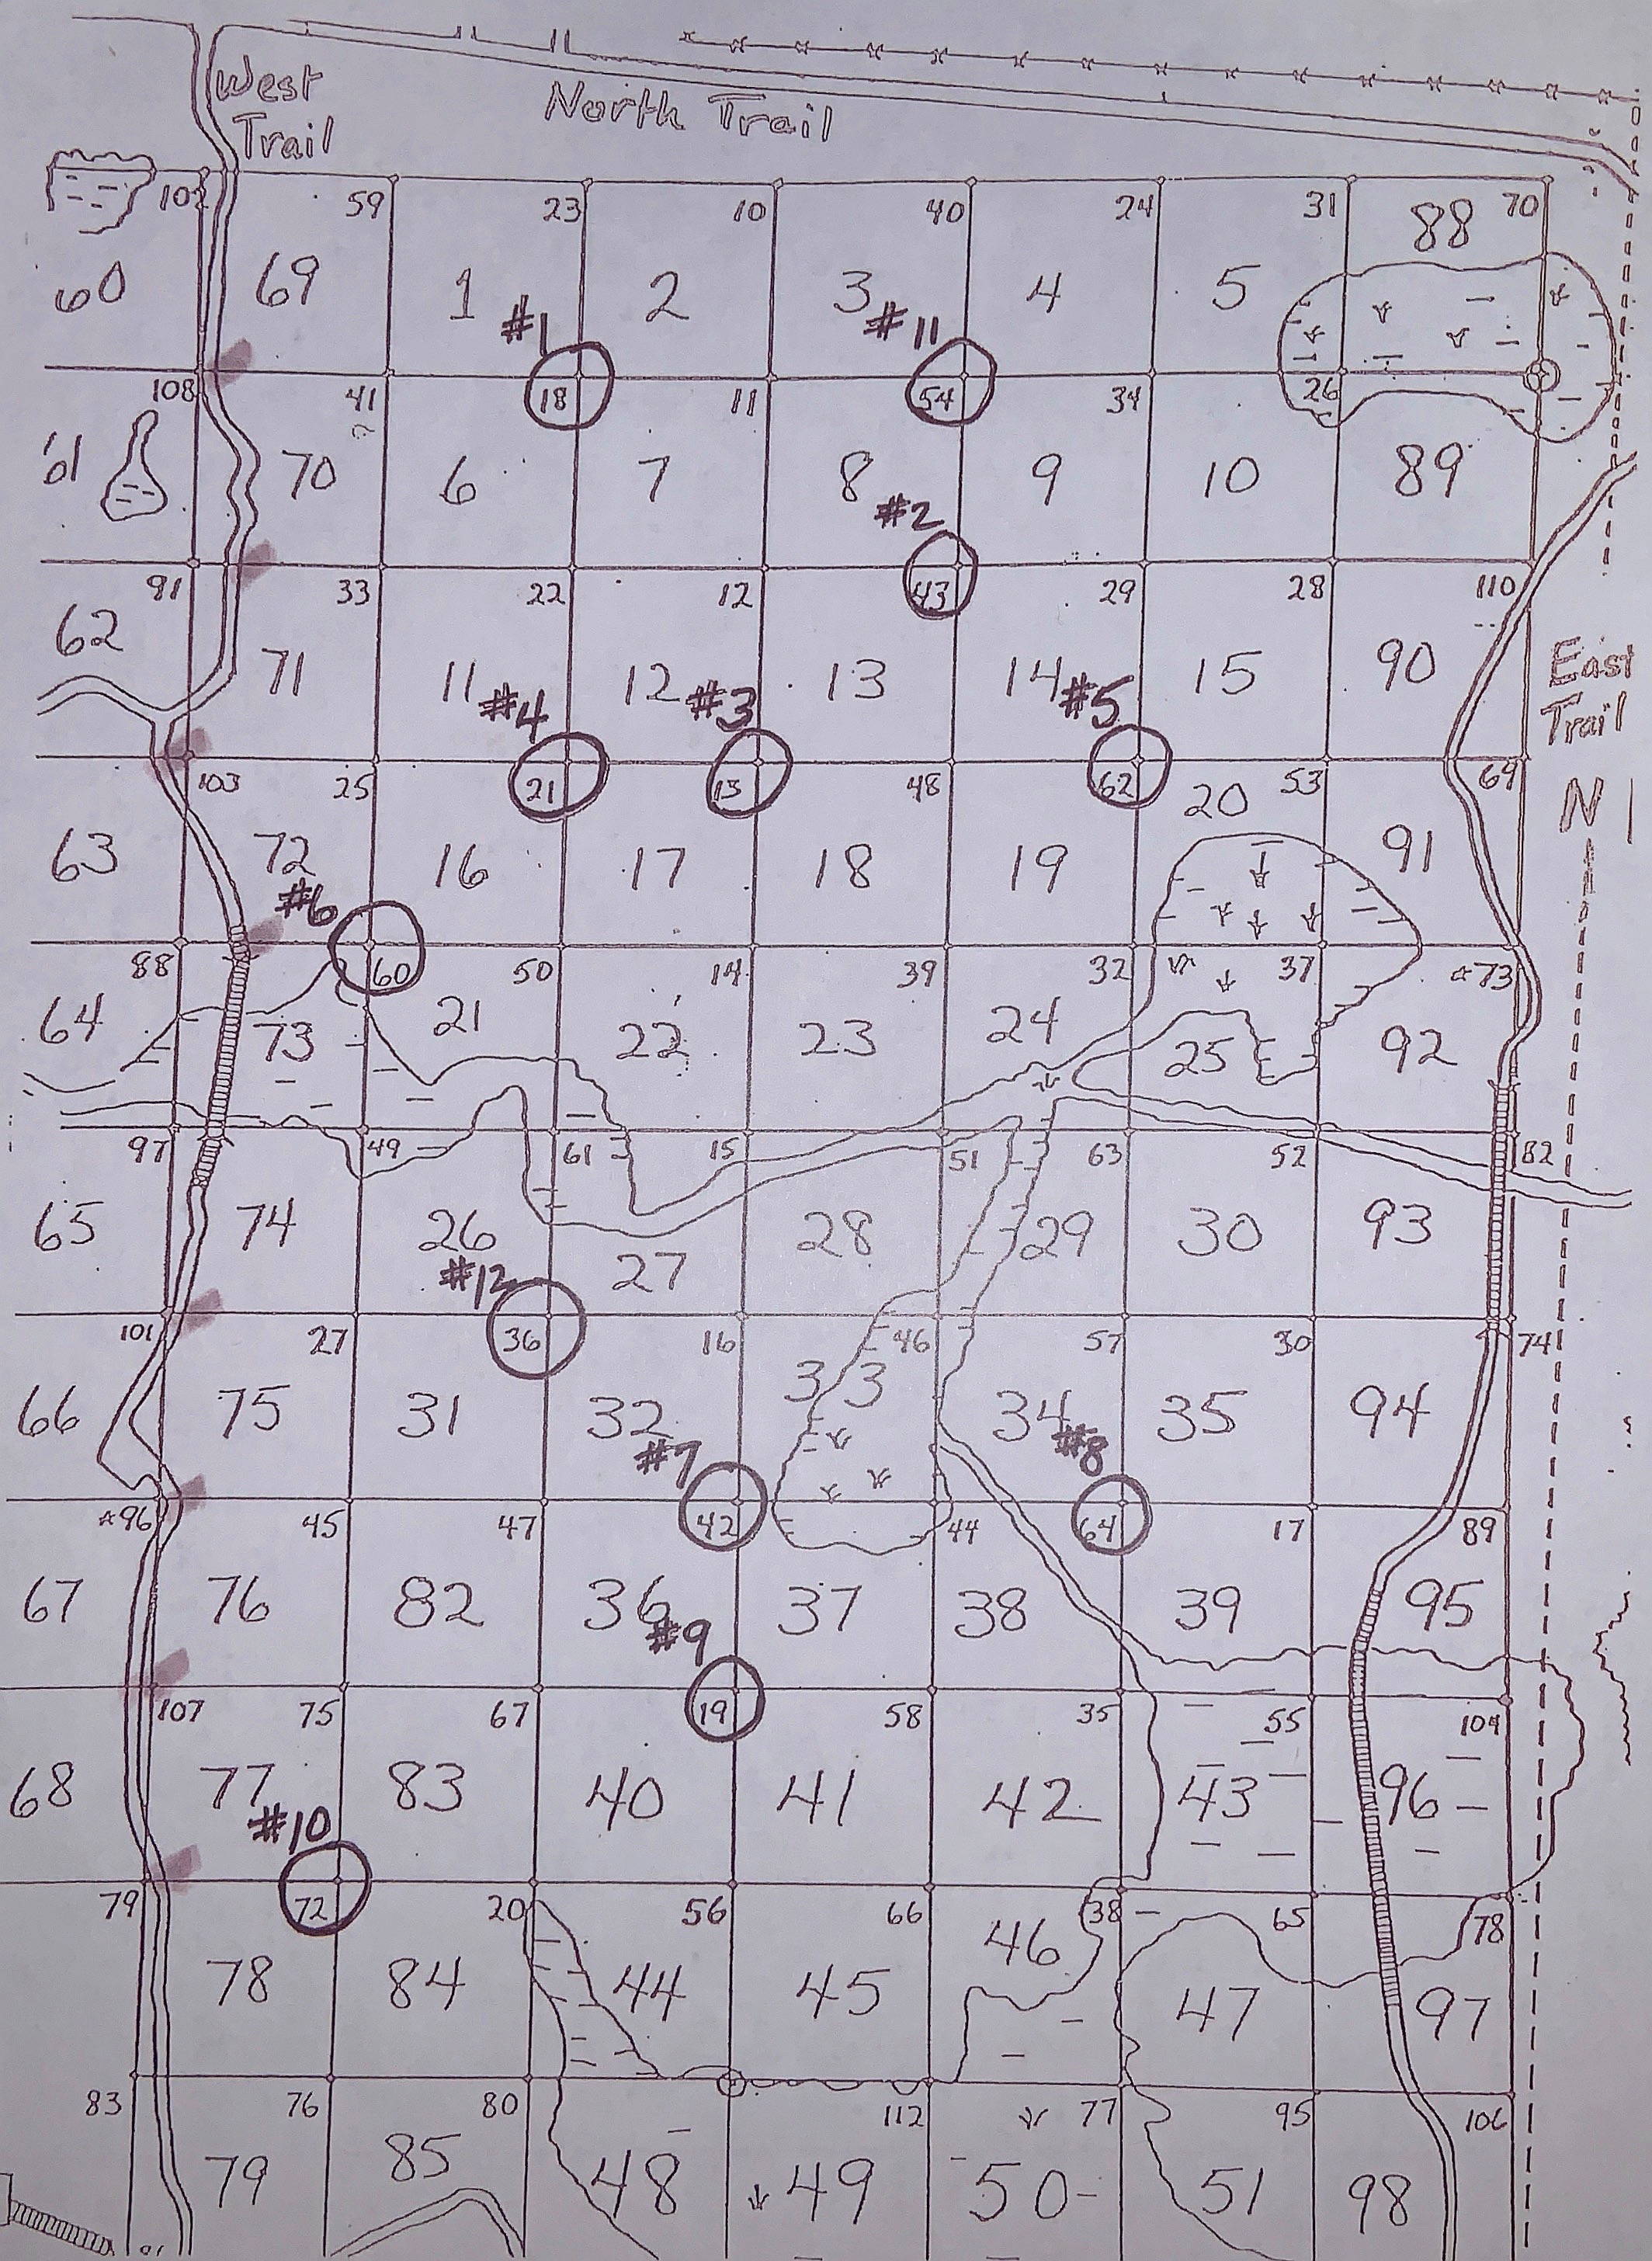 West
Trail
North Trail
59 23 10 40 24 31 88 70
60 69 1 #1 2 3 #11 4 5
108 41 18 11 54 34 26
70 6 7 8 #2 9 10 89
91 33 22 12 43 29 28 110
62 71 11 #4 12 #3 13 14 #5 15 90 East
Trail
103 25 21 13 48 62 20 53 69 N
63 72 #6 16 17 18 19 91
88 60 50 14 39 32 37 ☆73
64 73 21 22 23 24 25 92
97 49 61 15 51 63 52 82
65 74 26 #12 27 28 29 30 93
101 27 36 16 46 57 30 74
66 75 31 32 #7 33 34 #8 35 94
☆96 45 47 42 44 64 17 89
67 76 82 36 #9 37 38 39 95
107 75 67 19 58 35 55 104
68 77 #10 83 40 41 42 43 96
79 72 20 56 66 38 65 78
78 84 44 45 46 47 97
83 76 80 112 77 95 106
79 85 48 49 50 51 98